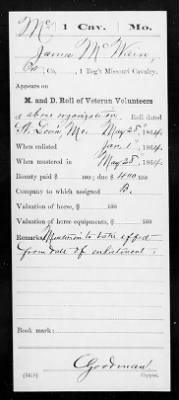 Mc | 1 Cav. | Mo.
James McWain
Co. , 1 Reg't Missouri Cavalry.
Appears on
M. and D. Roll of Veteran Volunteers
of above organization. Roll dated
St. Louis Mo. May 28, 1864.
When enlisted Jan 1, 1864.
When mustered in May 28, 1864.
Bounty paid $ 100; due $ 400 100
Company to which assigned B.
Valuation of horse, $ 100
Valuation of horse equipments, $ 100
Remarks: Muster-in to take effect
from date of enlistment.
Book mark:
Goodman
Copyist.